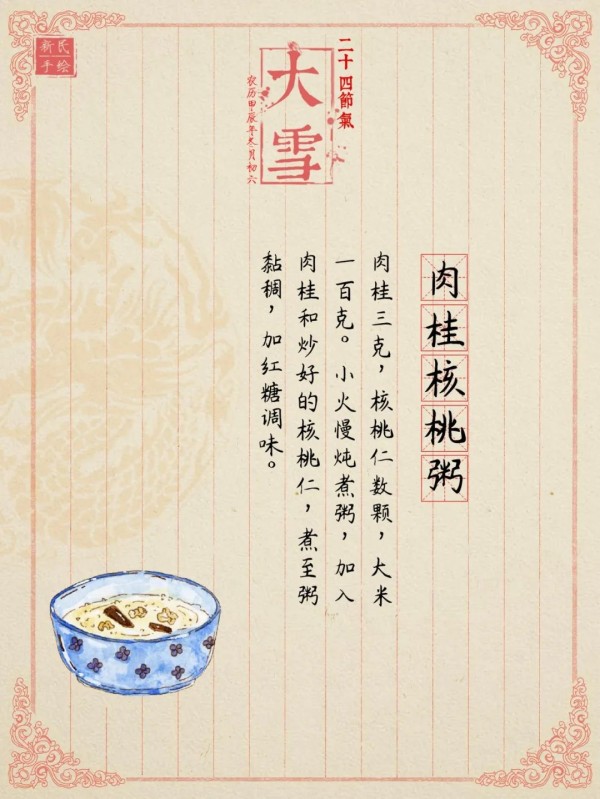 新民
手绘
二十四節氣
大雪
农历甲辰年冬月初六
肉桂核桃粥
肉桂三克，核桃仁数颗，大米
一百克。小火慢炖煮粥，加入
肉桂和炒好的核桃仁，煮至粥
黏稠，加红糖调味。